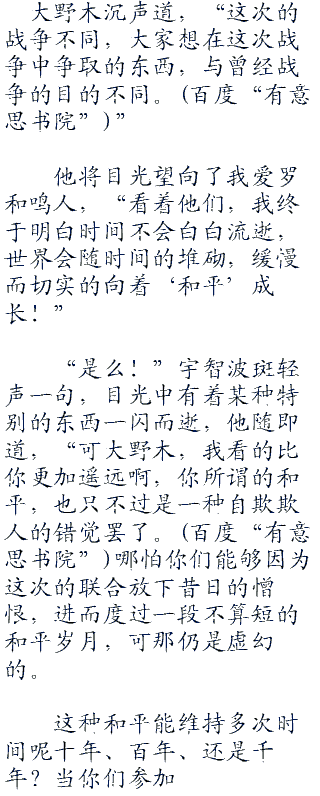 大野木沉声道，“这次的
战争不同，大家想在这次战
争中争取的东西，与曾经战
争的目的不同。(百度“有意
思书院”)”
他将目光望向了我爱罗
和鸣人，“看着他们，我终
于明白时间不会白白流逝，
世界会随时间的堆砌，缓慢
而切实的向着‘和平’成
长！”
“是么！”宇智波斑轻
声一句，目光中有着某种特
别的东西一闪而逝，他随即
道，“可大野木，我看的比
你更加遥远啊，你所谓的和
平，也只不过是一种自欺欺
人的错觉罢了。(百度“有意
思书院”)哪怕你们能够因为
这次的联合放下昔日的憎
恨，进而度过一段不算短的
和平岁月，可那仍是虚幻
的。
这种和平能维持多次时
间呢十年、百年、还是千
年？当你们参加